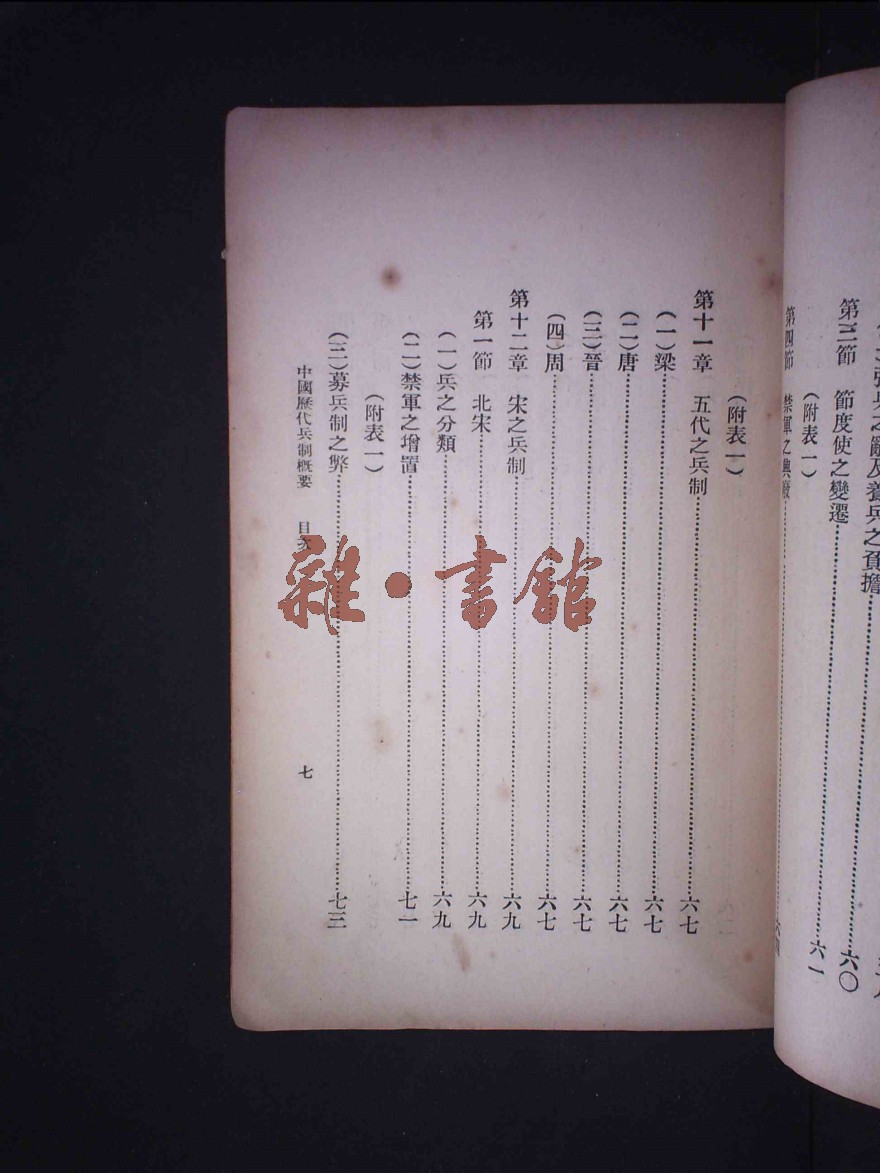 第三節　節度使之變遷……六〇
（附表一）……六一
第四節　禁軍之興廢……六四
（附表一）
第十一章　五代之兵制……六七
（一）梁……六七
（二）唐……六七
（三）晉……六七
（四）周……六七
第十二章　宋之兵制……六九
第一節　北宋……六九
（一）兵之分類……六九
（二）禁軍之增置……七一
（附表一）
（三）募兵制之弊……七三
中國歷代兵制概要　目次　七
雜・書館